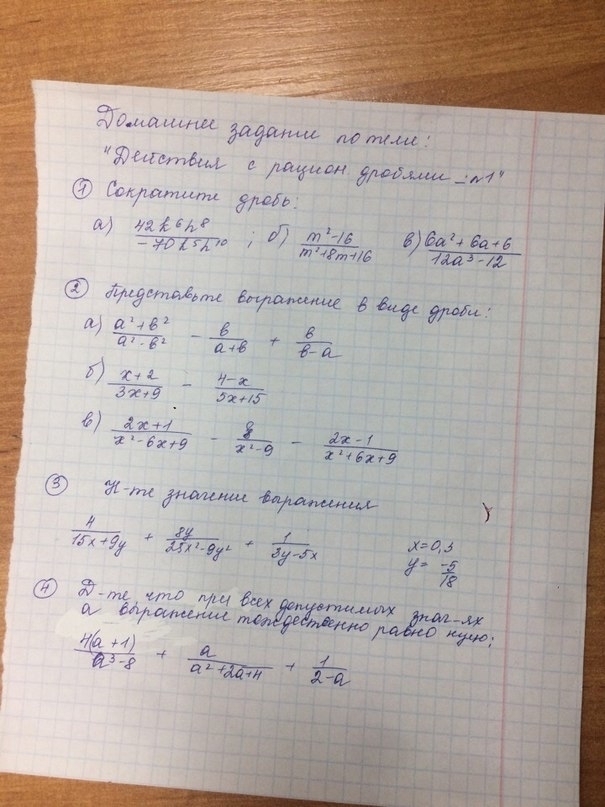 Домашнее задание по теме:
"Действия с рацион дробями - n1"
① Сократите дробь:
а) 42k⁶h⁸/-70k⁵h¹⁰ ; б) m²-16/m²+8m+16 в) 6a²+6a+6/12a³-12
② Представьте выражение в виде дроби:
а) a²+b²/a²-b² - b/a+b + b/b-a
б) x+2/3x+9 - 4-x/5x+15
в) 2x+1/x²-6x+9 - 8/x²-9 - 2x-1/x²+6x+9
③ Н-те значение выражения
4/15x+9y + 8y/25x²-9y² + 1/3y-5x x=0,3
y= -5/18
④ Д-те, что при всех допустимых знач-ях
a выражение тождественно равно нулю:
4(a+1)/a³-8 + a/a²+2a+4 + 1/2-a